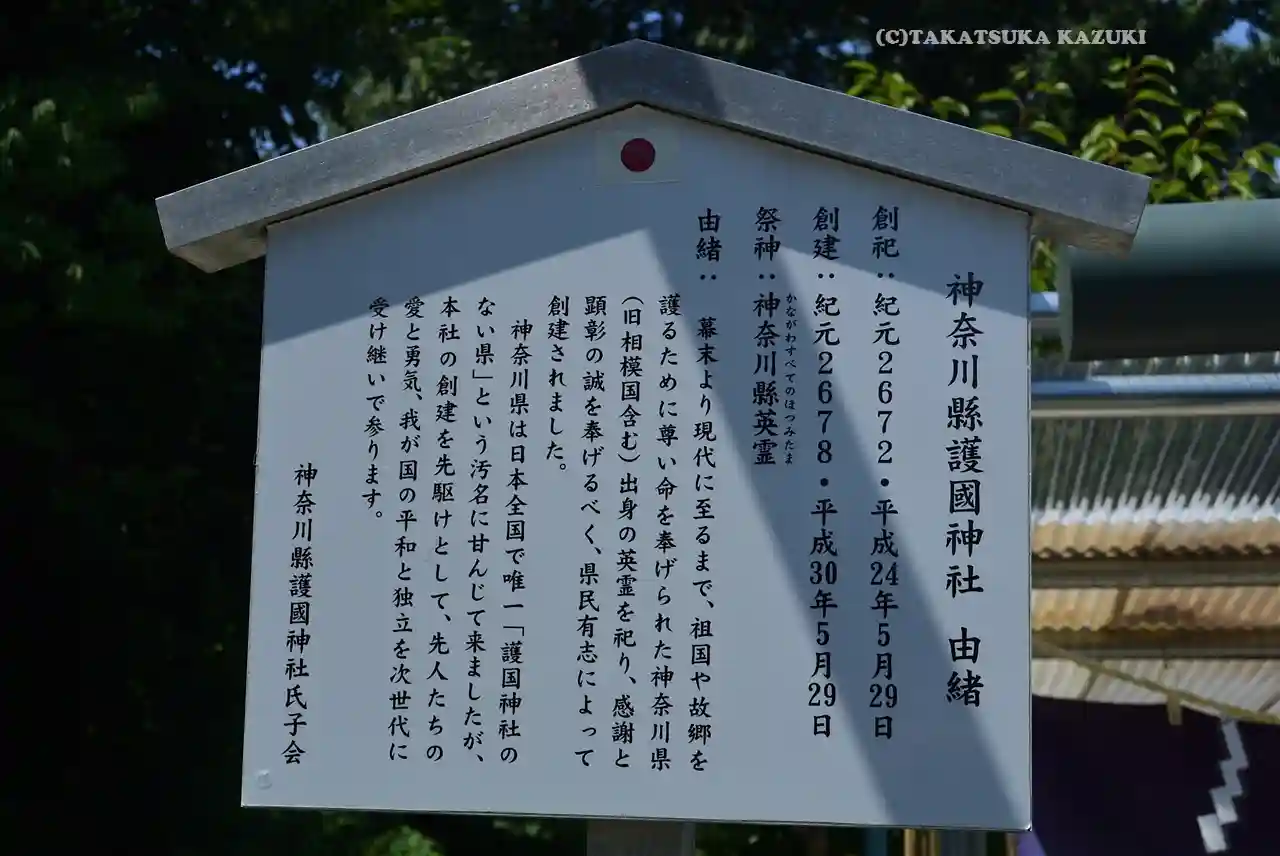 (C)TAKATSUKA KAZUKI
神奈川縣護國神社　由緒
創祀：紀元2672・平成24年5月29日
創建：紀元2678・平成30年5月29日
かながわすべてのほつみたま
祭神：神奈川縣英霊
由緒：　幕末より現代に至るまで、祖国や故郷を
護るために尊い命を奉げられた神奈川県
（旧相模国含む）出身の英霊を祀り、感謝と
顕彰の誠を奉げるべく、県民有志によって
創建されました。
神奈川県は日本全国で唯一「護国神社の
ない県」という汚名に甘んじて来ましたが、
本社の創建を先駆けとして、先人たちの
愛と勇気、我が国の平和と独立を次世代に
受け継いで参ります。
神奈川縣護國神社氏子会